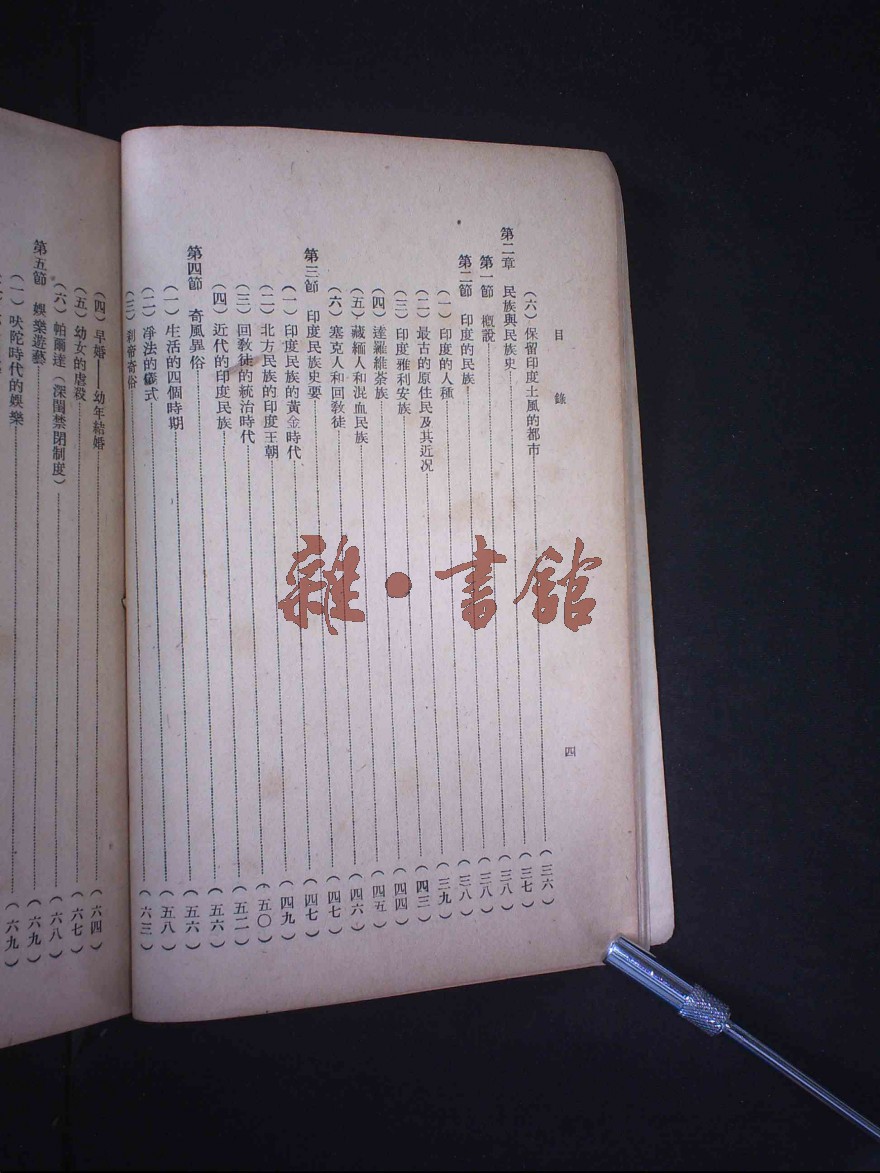 目錄
四
(六)保留印度土風的都市……(三六)
第二章 民族與民族史……(三七)
第一節 概說……(三八)
第二節 印度的民族……(三八)
(一)印度的人種……(三九)
(二)最古的原住民及其近况……(四三)
(三)印度雅利安族……(四四)
(四)達羅維荼族……(四五)
(五)藏緬人和混血民族……(四六)
(六)塞克人和回敎徒……(四七)
第三節 印度民族史要……(四七)
(一)印度民族的黃金時代……(四九)
(二)北方民族的印度王朝……(五〇)
(三)回敎徒的統治時代……(五二)
(四)近代的印度民族……(五六)
第四節 奇風異俗……(五六)
(一)生活的四個時期……(五八)
(二)淨法的儀式……(六三)
(三)刹帝奇俗
(四)早婚——幼年結婚……(六四)
(五)幼女的虐殺……(六七)
(六)帕爾達(深閨禁閉制度)……(六八)
第五節 娛樂遊藝……(六九)
(一)吠陀時代的娛樂……(六九)
雜·書館